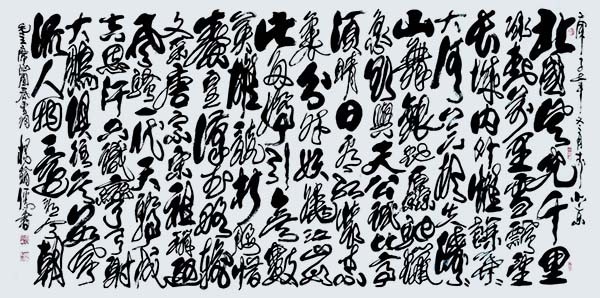 北國風光千里
冰封萬里雪飄望
長城內外惟餘莽莽
大河上下頓失滔滔
山舞銀蛇原馳蠟
象欲與天公試比高
須晴日看紅裝素
裹分外妖嬈江山如
此多嬌引無數
英雄競折腰惜
秦皇漢武略輸
文采唐宗宋祖稍遜
風騷一代天驕成
吉思汗只識彎弓射
大鵰俱往矣數風
流人物還看今朝
毛主席沁園春雪詞